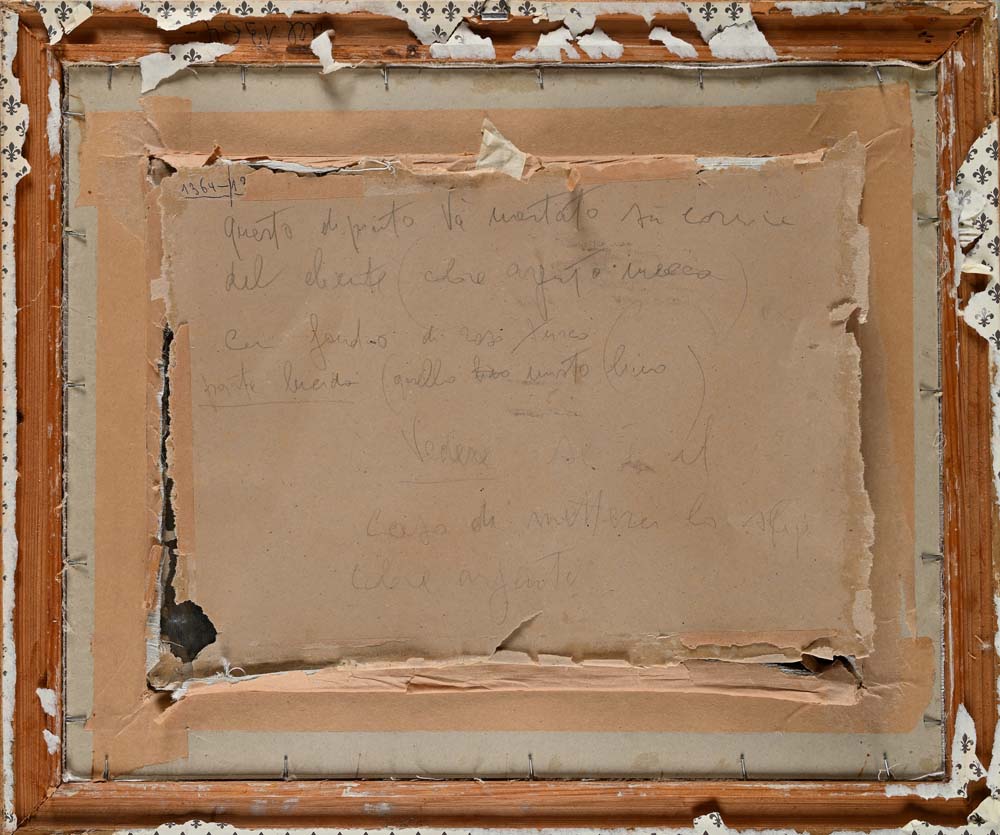 1364-1º
questo dipinto và montato su cornice
del cliente (colore argento mecca)
con fondino di raso
parte lucida (quello misto lino)
Vedere se è il
caso di metterci lo
colore argento